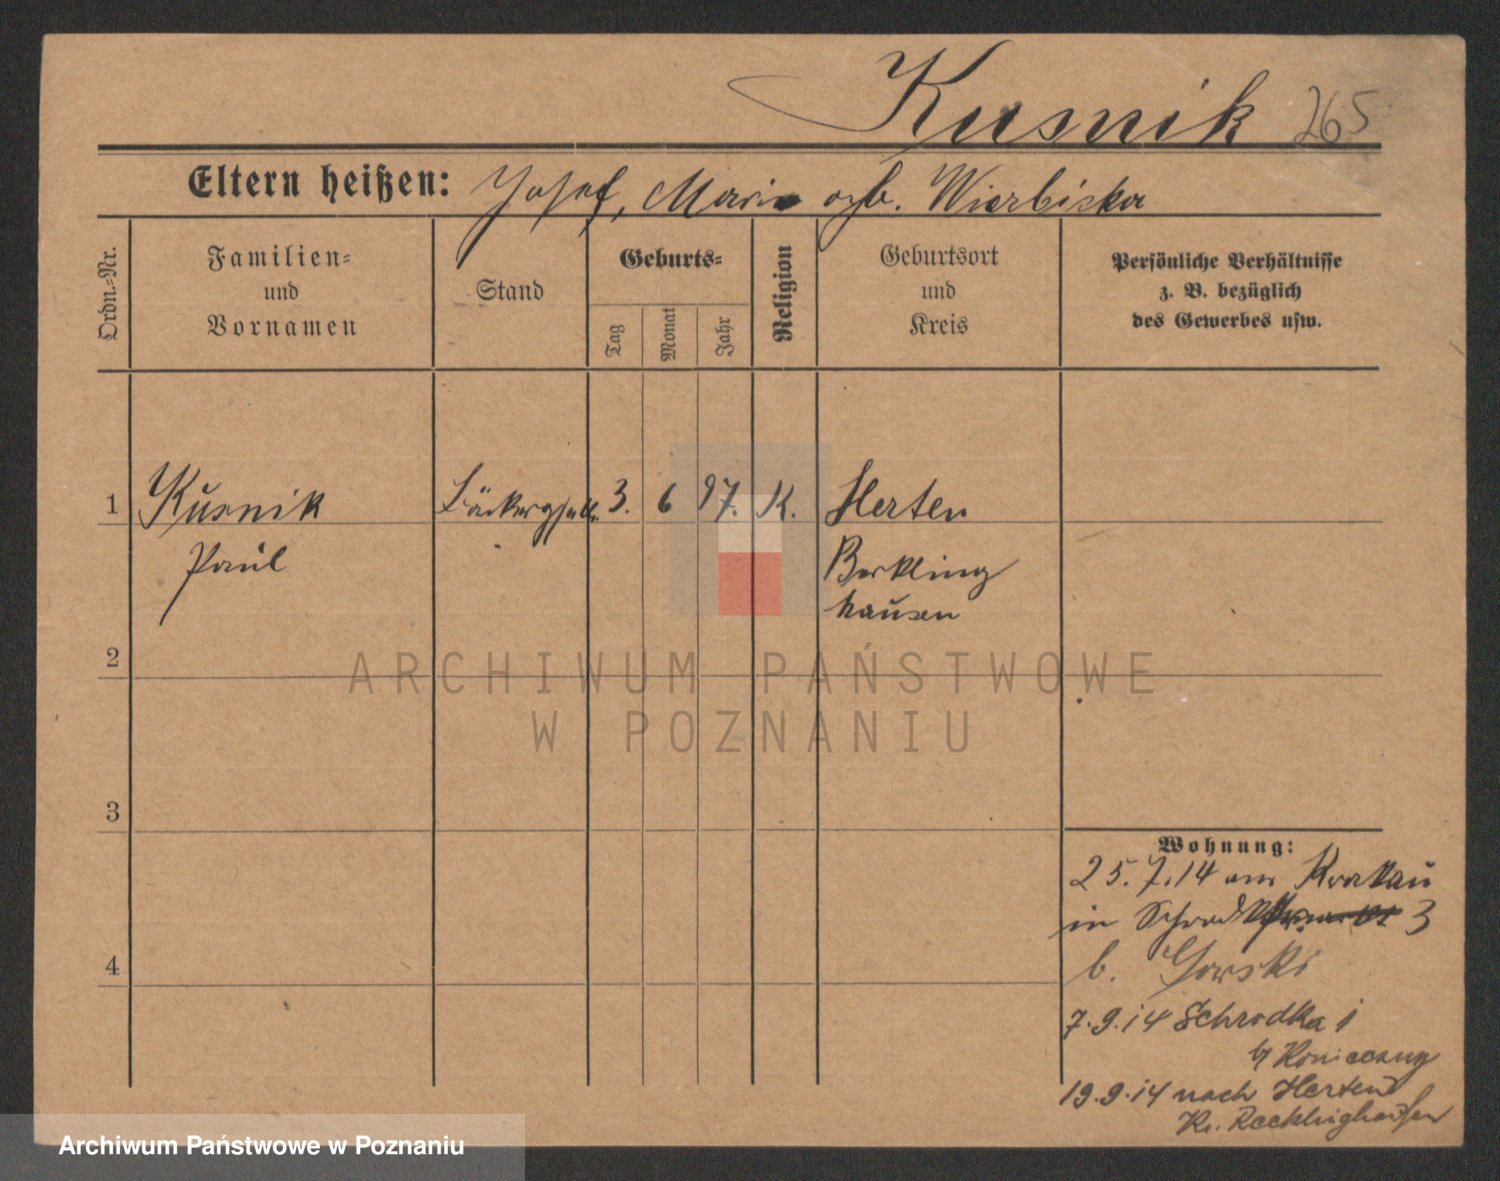 Kusnik 265
Eltern heißen: Josef, Marie geb. Wierbiska
Ordn.-Nr.
Familien-
und
Vornamen
Stand
Geburts-
Tag
Monat
Jahr
Religion
Geburtsort
und
Kreis
Persönliche Verhältnisse
z. B. bezüglich
des Gewerbes usw.
1 Kusnik Bäckergesell. 3. 6 97. K. Herten
Paul Berkling
hausen
2
ARCHIWUM PAŃSTWOWE
W POZNANIU
3
Wohnung:
25. 7. 14 aus Krakau
in 3
4 b. Gorski
7. 9. 14 Schrodka 1
b/ Konieczny
19. 9. 14 nach Herten
Kr. Recklinghausen
Archiwum Państwowe w Poznaniu